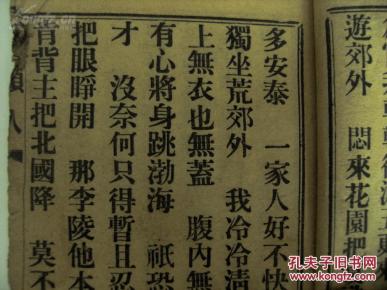 遊郊外　悶來花園把
多安泰　一家人好不快
獨坐荒郊外　我冷冷清
上無衣也無蓋　腹內無
有心將身跳渤海　祇恐
才　沒奈何只得暫且忍
把眼睜開　那李陵他本
背主把北國降　莫不
八